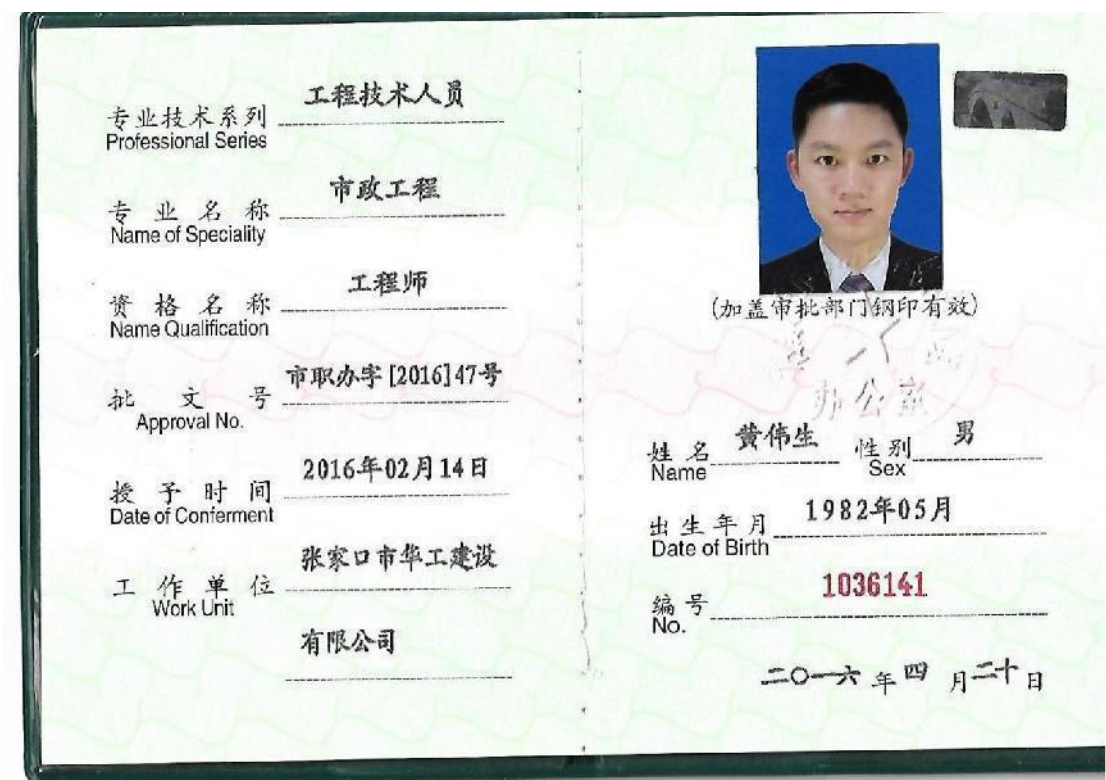 专业技术系列 工程技术人员
Professional Series
专业名称 市政工程
Name of Speciality
资格名称 工程师
Name Qualification
批文号 市职办字 [2016]47号
Approval No.
授予时间 2016年02月14日
Date of Conferment
工作单位 张家口市华工建设
Work Unit
有限公司
(加盖审批部门钢印有效)
办公室
姓名 黄伟生 性别 男
Name Sex
出生年月 1982年05月
Date of Birth
编号 1036141
No.
二〇一六年四月二十日